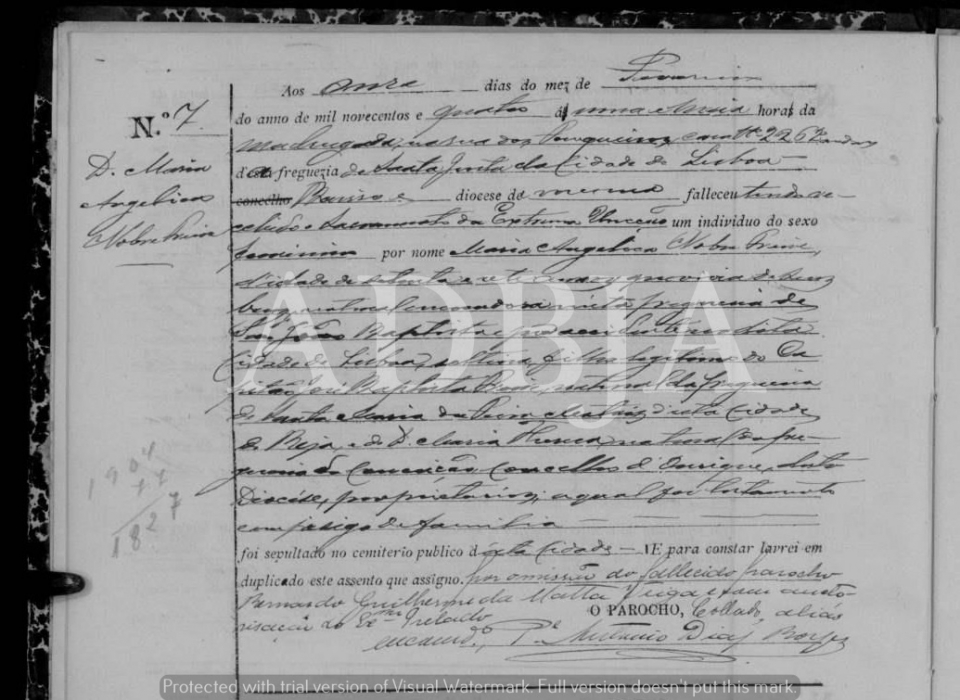 N.º 7
D. Maria
Angelica
Nobre Freire
Aos onze dias do mez de Fevereiro
do anno de mil novecentos e quatro ás uma e meia horas da
madrugada, na rua dos casa Nº 226
d'esta freguezia de Santa Justa da Cidade de Lisboa
concelho diocese de mesmo falleceu tendo re-
cebido o Sacramento da Extrema Uncção um individuo do sexo
feminino por nome Maria Angelica Nobre Freire,
d'idade de setenta e sete annos que vivia de seus
bens natural moradora n'esta freguezia de
São João Baptista e accidentalmente na dita
Cidade de Lisboa, solteira, filha legitima do Ca-
pitão José Baptista natural da freguezia
de Santa Maria da Feira d'esta Cidade
de Beja e de D. Maria Thereza natural da fre-
guezia da Conceição Concelho d'Ourique, desta
Diocese, proprietarios, a qual fez testamento
com jazigo de familia
foi sepultado no cemiterio publico d'esta Cidade E para constar lavrei em
duplicado este assento que assigno. por omissão do fallecido parocho
Bernardo Guilherme da Matta Veiga e com auctó-
risação do Exmo Prelado O PAROCHO, Collado, aliás
encomdo. Pe Antonio Dias Borges
1904
77
1827
ADBJA
Protected with trial version of Visual Watermark. Full version doesn't put this mark.